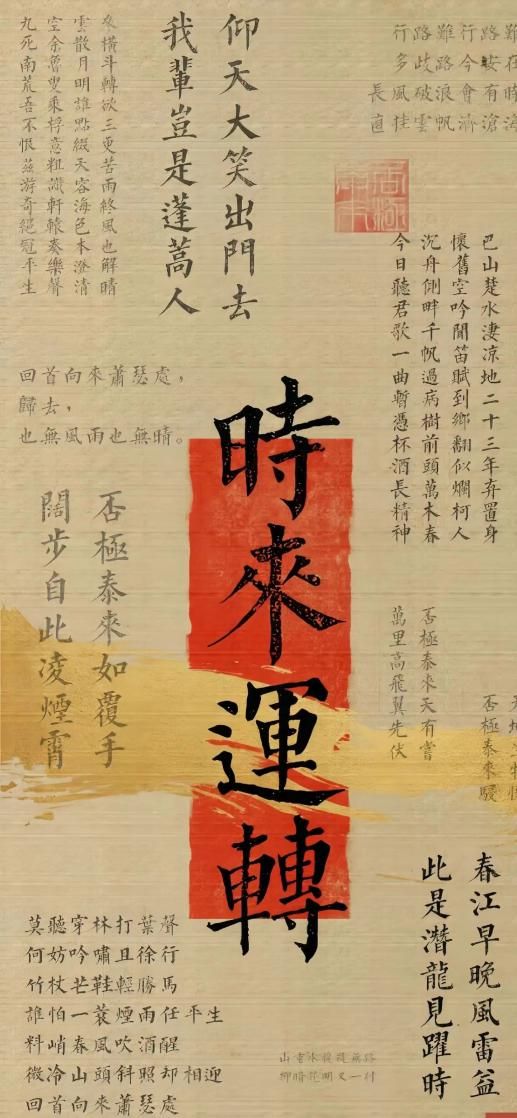 行路難行路難
多歧路今安在
長風破浪會有時
直挂雲帆濟滄海
仰天大笑出門去
我輩豈是蓬蒿人
參橫斗轉欲三更苦雨終風也解晴
雲散月明誰點綴天容海色本澄清
空余魯叟乘桴意粗識軒轅奏樂聲
九死南荒吾不恨茲游奇絕冠平生
巴山楚水淒涼地二十三年弃置身
懷舊空吟聞笛賦到鄉翻似爛柯人
沉舟側畔千帆過病樹前頭萬木春
今日聽君歌一曲暫憑杯酒長精神
回首向來蕭瑟處，
歸去，
也無風雨也無晴。
時來運轉
否極泰來如覆手
闊步自此凌煙霄
否極泰來天有嘗
萬里高飛翼先伏
否極泰來
春江早晚風雷益
此是潛龍見躍時
莫聽穿林打葉聲
何妨吟嘯且徐行
竹杖芒鞋輕勝馬
誰怕一蓑煙雨任平生
料峭春風吹酒醒
微冷山頭斜照却相迎
回首向來蕭瑟處
山重水複疑無路
柳暗花明又一村